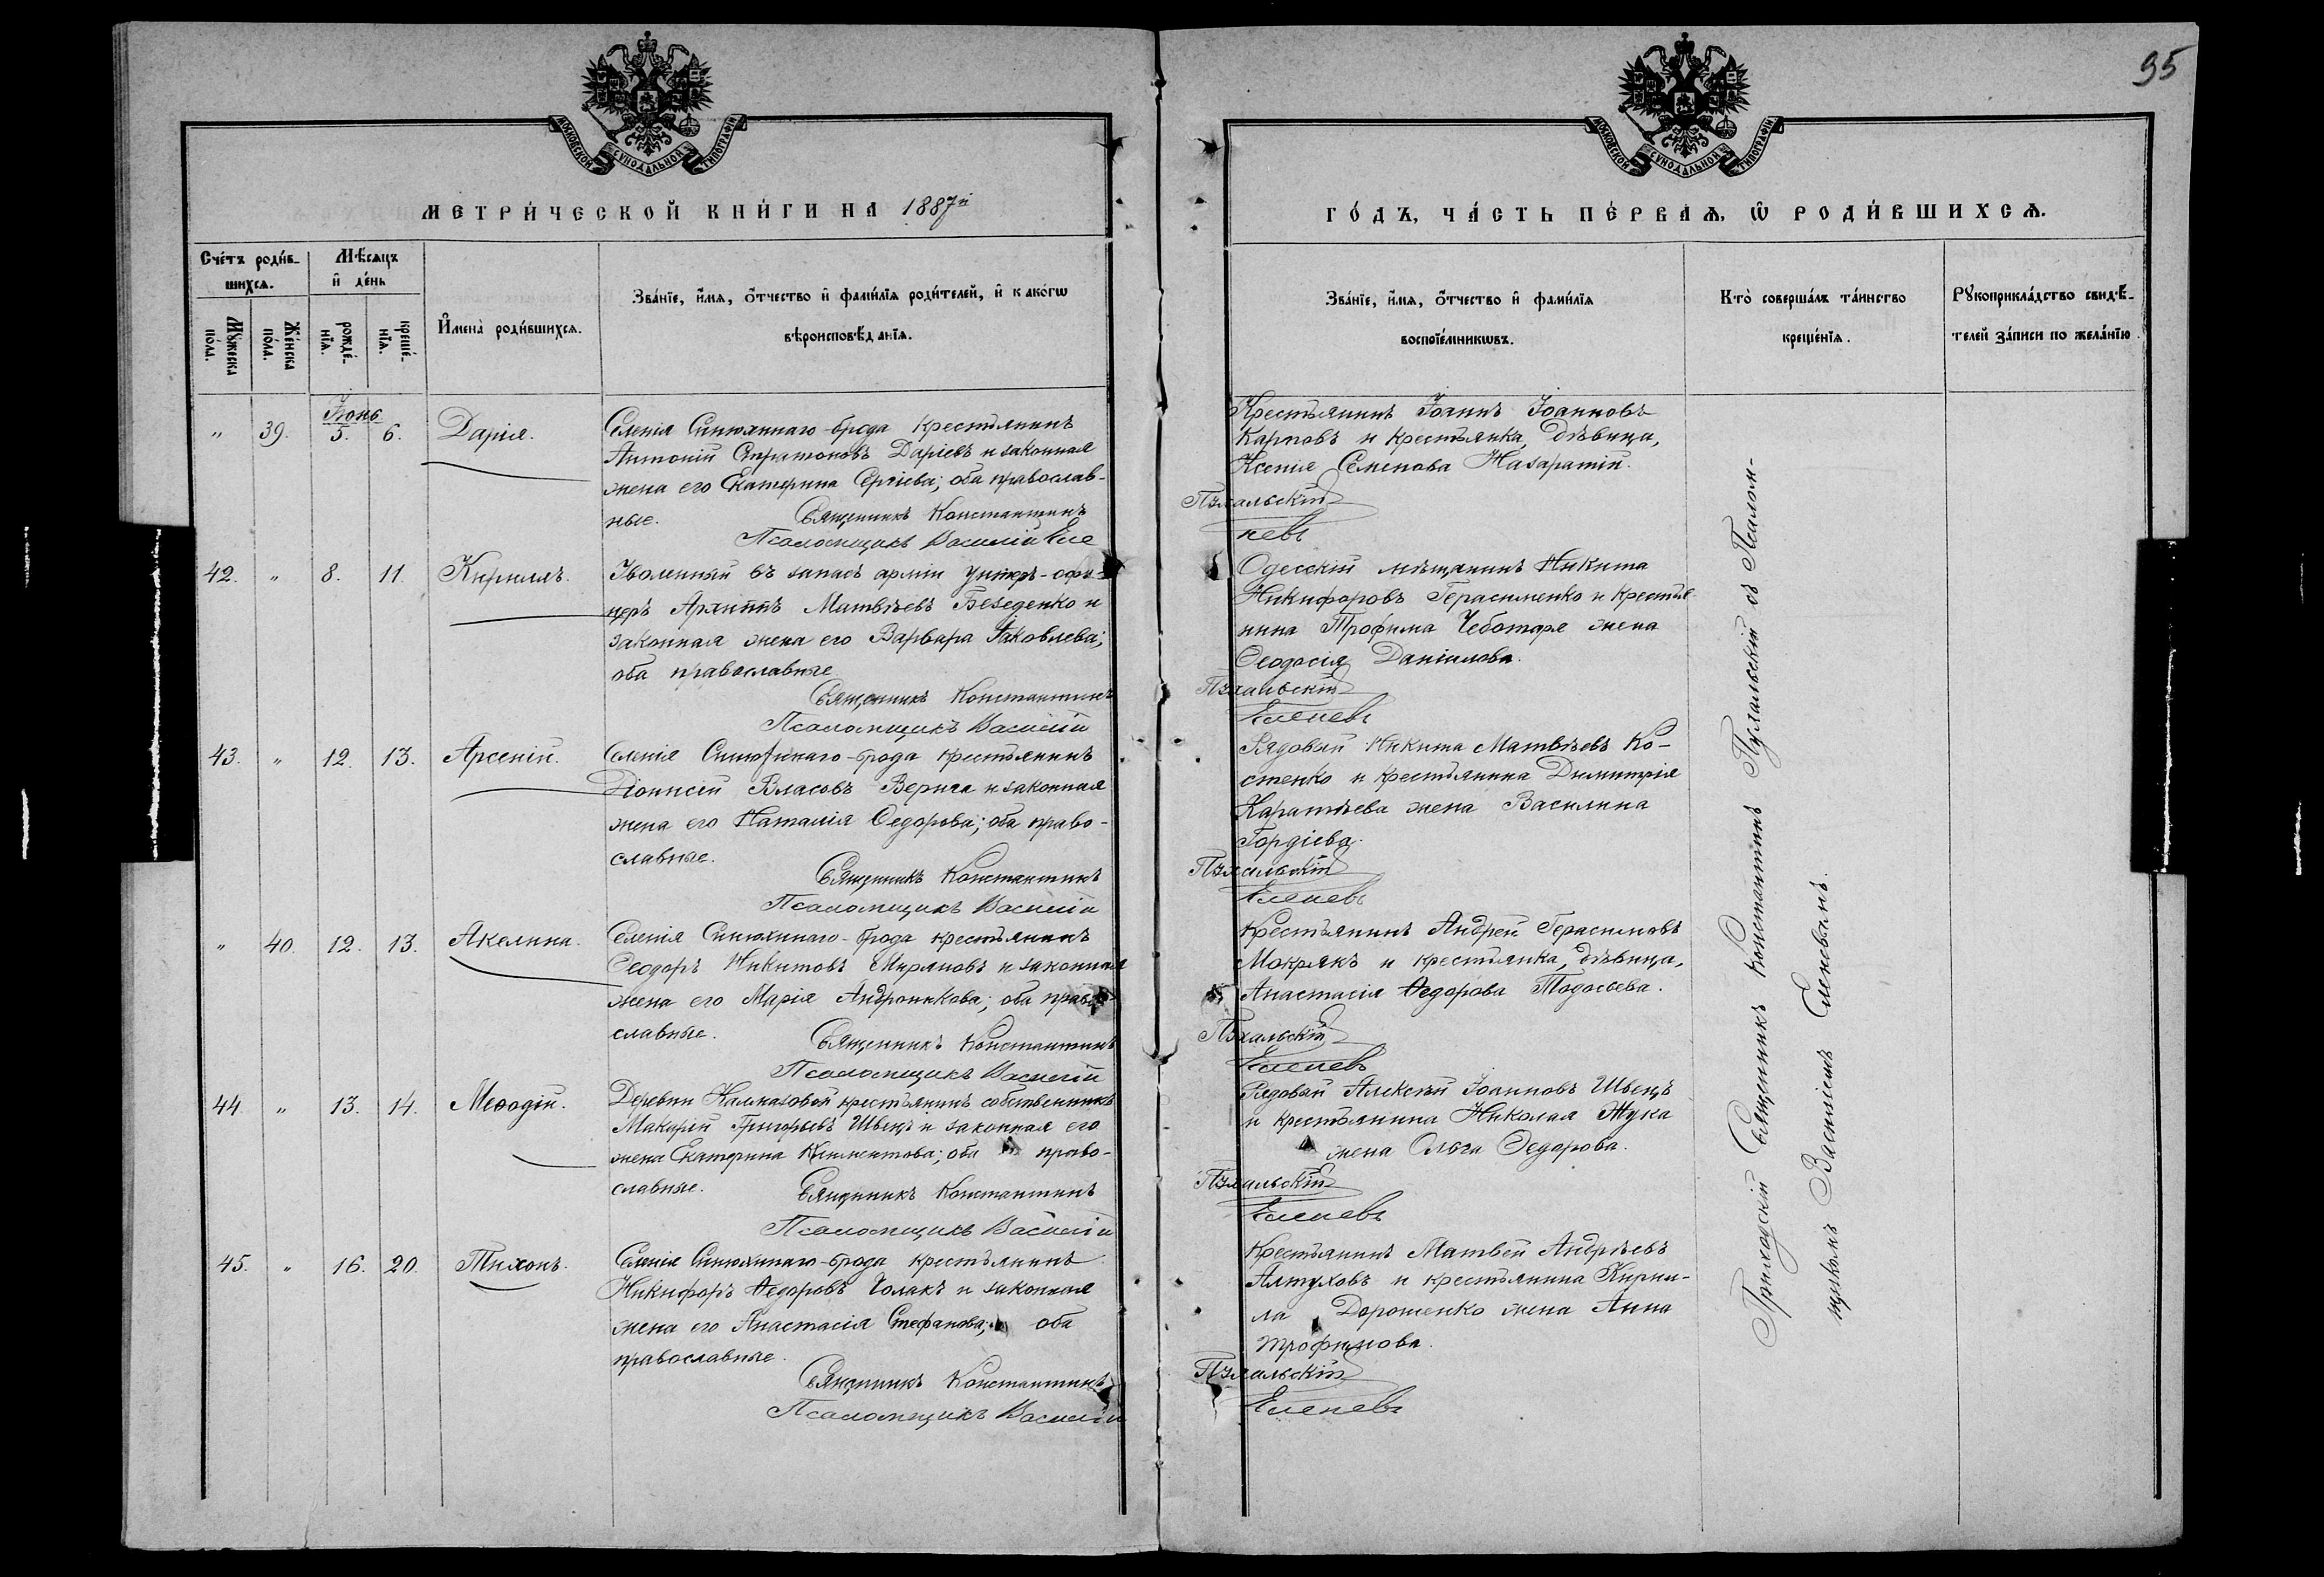 95
МОСКОВСКОЙ СѴНОДАЛЬНОЙ ТИПОГРАФІИ
МОСКОВСКОЙ СѴНОДАЛЬНОЙ ТИПОГРАФІИ
МЕТРИ́ЧЕСКОЙ КНИ́ГИ НА 1887й
ГО́ДЪ, ЧА́СТЬ ПЕ́РВАѦ, Ѡ РОДИ́ВШИХСѦ.
Сче́тъ роди́в-
шихсѧ.
Мѣ́сѧцъ
и҆ де́нь
Мꙋ́жеска
по́ла.
Же́нска
по́ла.
рожде́-
нїѧ.
креще́-
нїѧ.
И҆мена̀ роди́вшихсѧ.
Зва́нїе, и҆́мѧ, ѻ҆́тчество и҆ фами́лїѧ роди́телей, и҆ како́гѡ
вѣроисповѣ́данїѧ.
Зва́нїе, и҆́мѧ, ѻ҆́тчество и҆ фами́лїѧ
воспрїе́мникѡвъ.
Кто̀ соверша́лъ та́инство
креще́нїѧ.
Рꙋкоприкла́дство свидѣ́-
телей за́писи по жела́нїю
Іюнь
" 39. 5. 6. Дарія.
Селенія Синюхинаго-брода крестьянинъ
Антоній Спратоновъ Даріевъ и законная
жена его Екатерина Сергіева; оба православ-
ные. Священникъ Константинъ
Псаломщикъ Василій Еле
Крестьянинъ Іоаннъ Іоанновъ
Карповъ и крестьянка, дѣвица,
Ксенія Семенова Назаратій.
Пухальскій
невъ
42. " 8. 11. Кириллъ.
Уволенный въ запасъ арміи унтеръ-офи-
церъ Архиппъ Матвѣевъ Беседенко и
законная жена его Варвара Іаковлева;
оба православные
Священникъ Константинъ
Псаломщикъ Василій
Одесскій мѣщанинъ Никита
Никифоровъ Герасименко и крестья-
нина Трофима Чеботаря жена
Ѳеодосія Даніилова.
Пухальскій
Еленевъ
43. " 12. 13. Арсеній.
Селенія Синюхинаго-брода крестьянинъ
Діонисій Власовъ Верига и законная
жена его Наталія Ѳедорова; оба право-
славные.
Священникъ Константинъ
Псаломщикъ Василій
Рядовой Никита Матвѣевъ Ко-
стенко и крестьянина Димитрія
Каратѣева жена Василина
Гордіева.
Пухальскій
Еленевъ
" 40. 12. 13. Акелина.
Селенія Синюхинаго-брода крестьянинъ
Ѳеодоръ Никитовъ Миряновъ и законная
жена его Марія Андроникова; оба право-
славные.
Священникъ Константинъ
Псаломщикъ Василій
Крестьянинъ Андрей Герасимовъ
Мокрякъ и крестьянка, дѣвица,
Анастасія Ѳедорова Тодосьева.
Пухальскій
Еленевъ
44. " 13. 14. Меѳодій.
Деревни Калмазовой крестьянинъ собственникъ
Макарій Григорьевъ Швецъ и законная его
жена Екатерина Климентова; оба право-
славные. Священникъ Константинъ
Псаломщикъ Василій
Рядовой Алексѣй Іоанновъ Швецъ
и крестьянина Николая Жука
жена Ольга Ѳедорова.
Пухальскій
Еленевъ
45. " 16. 20. Тихонъ.
Селенія Синюхинаго-брода крестьянинъ
Никифоръ Ѳедоровъ Чолакъ и законная
жена его Анастасія Стефанова; оба
православные.
Священникъ Константинъ
Псаломщикъ Василій
Крестьянинъ Матвей Андрѣевъ
Алтуховъ и крестьянина Кирил-
ла Дорошенко жена Анна
Трофимова.
Пухальскій
Еленевъ
Приходскій Священникъ Константинъ Пухальскій съ Псалом-
щикомъ Василіемъ Еленевымъ.